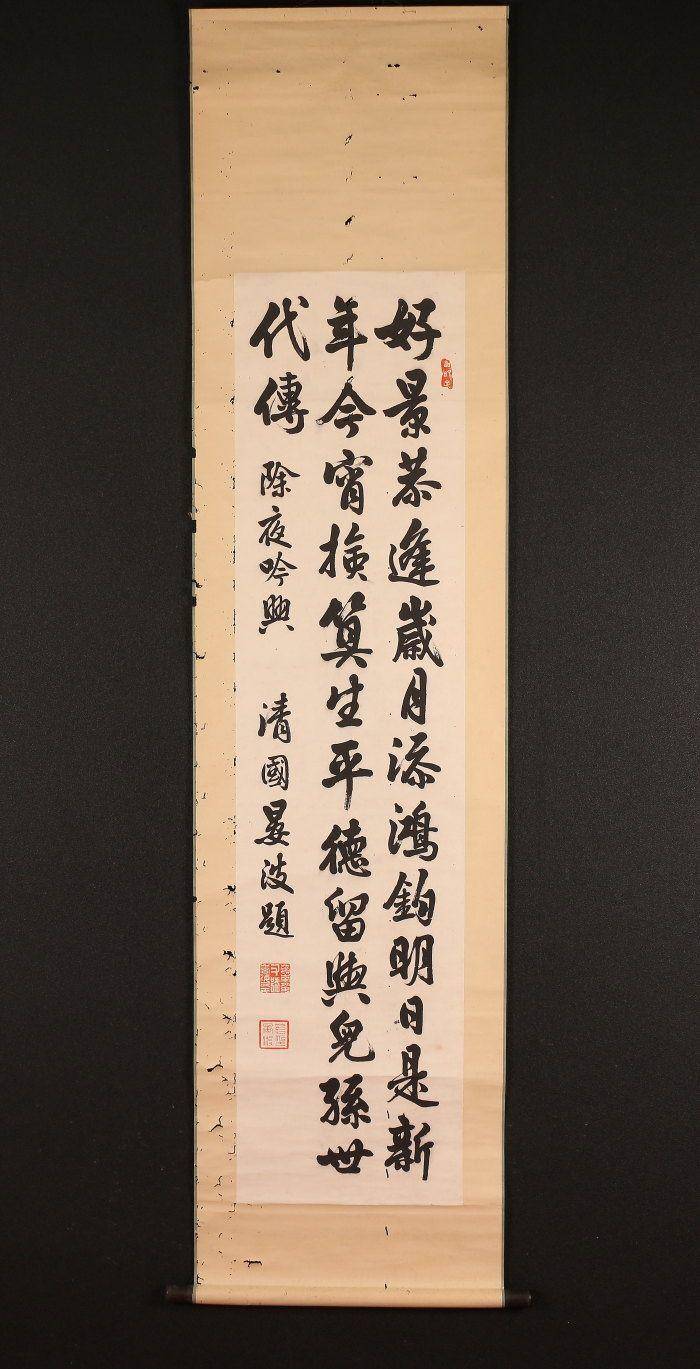 好景恭逢歲月添鴻鈞明日是新
年今宵撿算生平德留與兒孫世
代傳 除夜吟興 清國晏波題